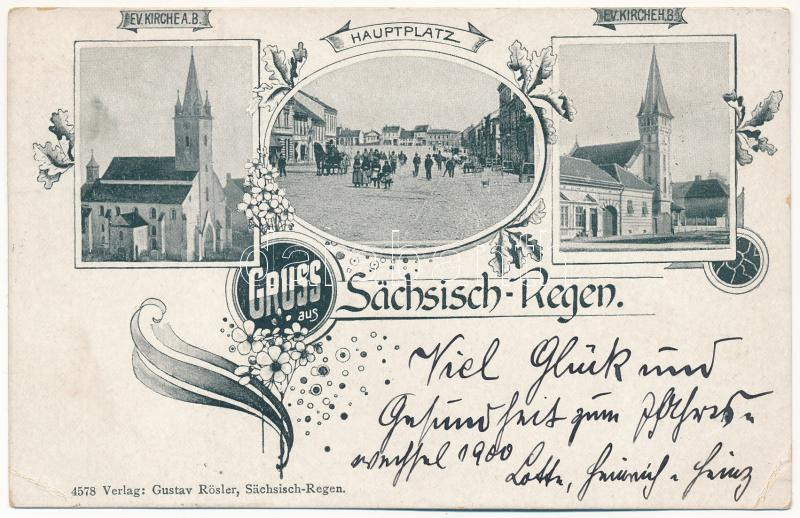 EV. KIRCHE A.B.
HAUPTPLATZ
EV. KIRCHE H.B.
GRUSS
aus
Sächsisch-Regen.
Viel Glück und
Gesundheit zum Jahres-
wechsel 1900
Lotte, Heinrich & Heinz
4578 Verlag: Gustav Rösler, Sächsisch-Regen.